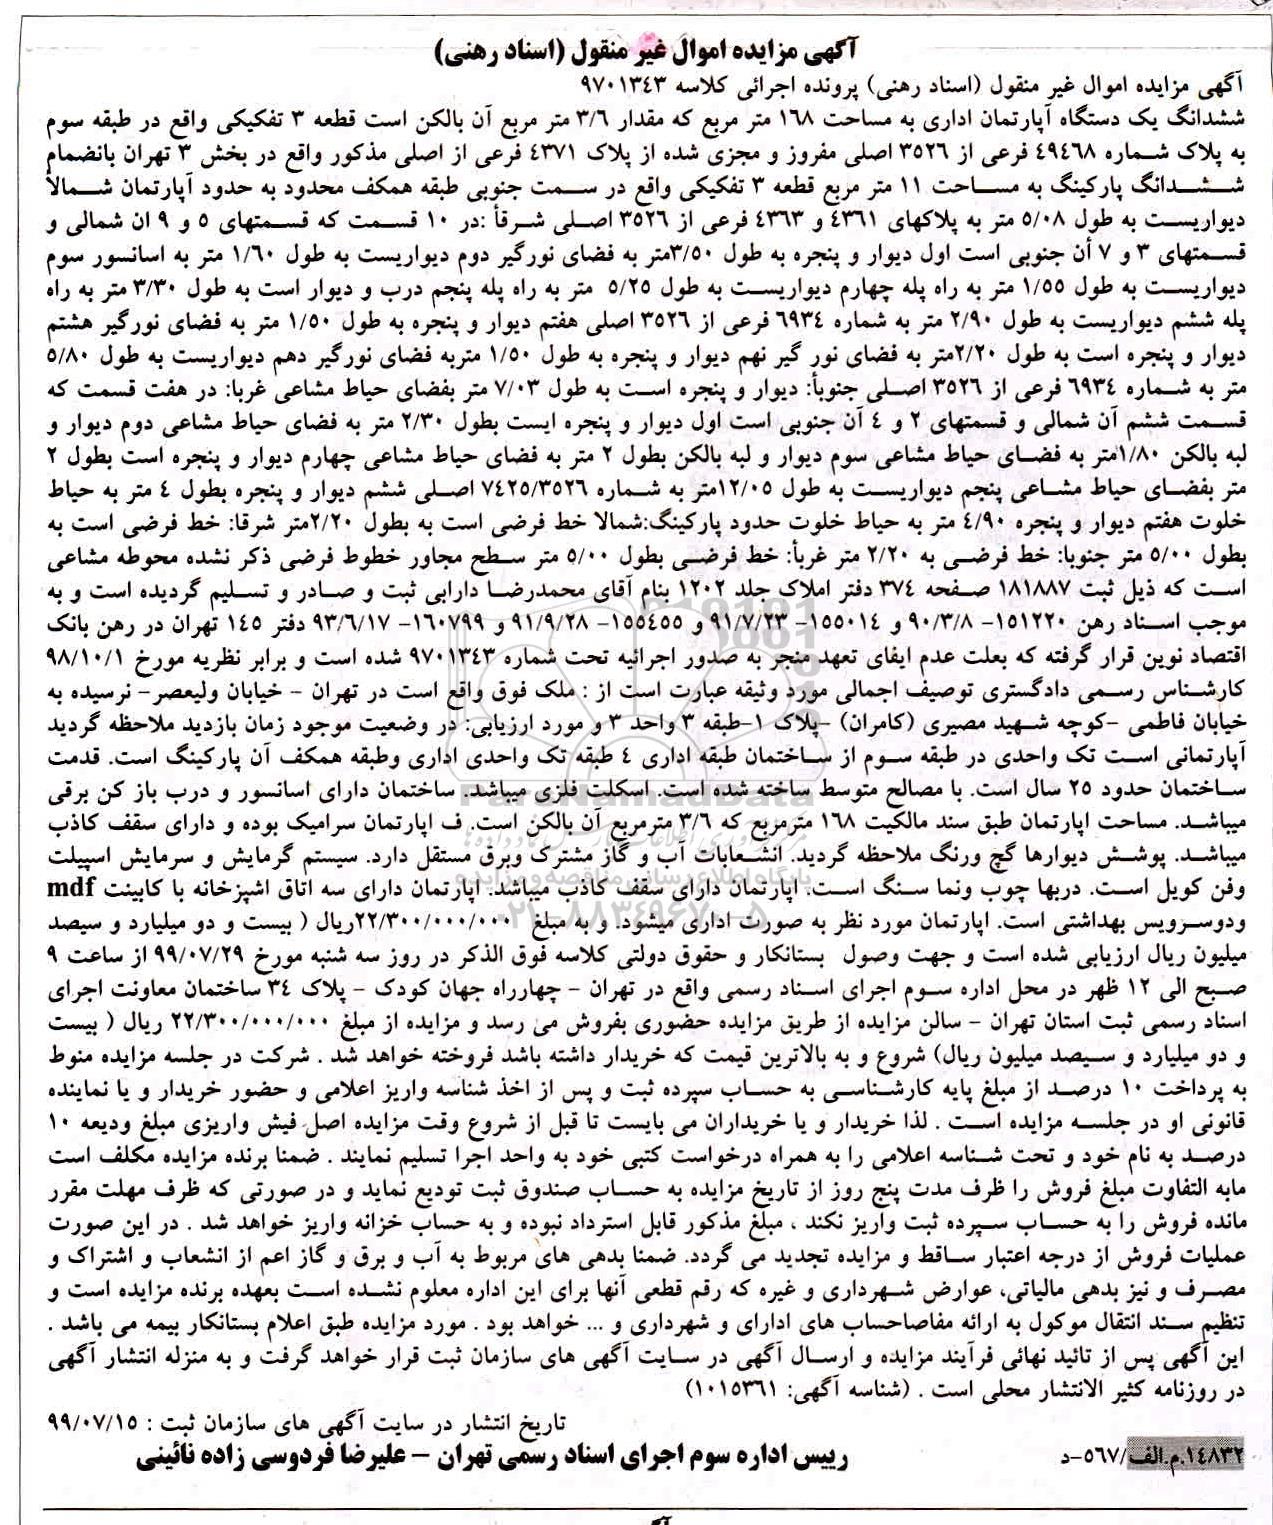 آگهی مزایده اموال غیر منقول (اسناد رهنی)
آگهی مزایده اموال غیر منقول (اسناد رهنی) پرونده اجرائی کلاسه ۹۷۰۱۳۴۳
ششدانگ یک دستگاه آپارتمان اداری به مساحت ۱۶۸ متر مربع که مقدار ۳/۶ متر مربع آن بالکن است قطعه ۳ تفکیکی واقع در طبقه سوم
به پلاک شماره ۴۹۴۶۸ فرعی از ۳۵۲۶ اصلی مفروز و مجزی شده از پلاک ۴۳۷۱ فرعی از اصلی مذکور واقع در بخش ۳ تهران بانضمام
ششدانگ پارکینگ به مساحت ۱۱ متر مربع قطعه ۳ تفکیکی واقع در سمت جنوبی طبقه همکف محدود به حدود آپارتمان شمالاً
دیواریست به طول ۵/۰۸ متر به پلاکهای ۴۳۶۱ و ۴۳۶۳ فرعی از ۳۵۲۶ اصلی شرقأ :در ۱۰ قسمت که قسمتهای ۵ و ۹ ان شمالی و
قسمتهای ۳ و ۷ أن جنوبی است اول دیوار و پنجره به طول ۳/۵۰متر به فضای نورگیر دوم دیواریست به طول ۱/۶۰ متر به اسانسور سوم
دیواریست به طول ۱/۵۵ متر به راه پله چهارم دیواریست به طول ۵/۲۵ متر به راه پله پنجم درب و دیوار است به طول ۳/۳۰ متر به راه
پله ششم دیواریست به طول ۲/۹۰ متر به شماره ۶۹۳۴ فرعی از ۳۵۲۶ اصلی هفتم دیوار و پنجره به طول ۱/۵۰ متر به فضای نورگیر هشتم
دیوار و پنجره است به طول ۲/۲۰متر به فضای نور گیر نهم دیوار و پنجره به طول ۱/۵۰ متربه فضای نورگیر دهم دیواریست به طول ۵/۸۰
متر به شماره ۶۹۳۴ فرعی از ۳۵۲۶ اصلی جنوبأ: دیوار و پنجره است به طول ۷/۰۳ متر بفضای حیاط مشاعی غربا: در هفت قسمت که
قسمت ششم آن شمالی و قسمتهای ۲ و ۴ آن جنوبی است اول دیوار و پنجره ایست بطول ۲/۳۰ متر به فضای حیاط مشاعی دوم دیوار و
لبه بالکن ۱/۸۰متر به فضای حیاط مشاعی سوم دیوار و لبه بالکن بطول ۲ متر به فضای حیاط مشاعی چهارم دیوار و پنجره است بطول ۲
متر بفضای حیاط مشاعی پنجم دیواریست به طول ۱۲/۰۵متر به شماره ۷۴۲۵/۳۵۲۶ اصلی ششم دیوار و پنجره بطول ۴ متر به حیاط
خلوت هفتم دیوار و پنجره ۴/۹۰ متر به حیاط خلوت حدود پارکینگ:شمالا خط فرضی است به بطول ۲/۲۰متر شرقا: خط فرضی است به
بطول ۵/۰۰ متر جنوبا: خط فرضی به ۲/۲۰ متر غربأ: خط فرضی بطول ۵/۰۰ متر سطح مجاور خطوط فرضی ذکر نشده محوطه مشاعی
است که ذیل ثبت ۱۸۱۸۸۷ صفحه ۳۷۴ دفتر املاک جلد ۱۲۰۲ بنام آقای محمدرضا دارابی ثبت و صادر و تسلیم گردیده است و به
موجب اسناد رهن ۱۵۱۲۲۰- ۹۰/۳/۸ و ۱۵۵۰۱۴- ۹۱/۷/۲۳ و ۱۵۵۴۵۵- ۹۱/۹/۲۸ و ۱۶۰۷۹۹- ۹۳/۶/۱۷ دفتر ۱۴۵ تهران در رهن بانک
اقتصاد نوین قرار گرفته که بعلت عدم ایفای تعهد منجر به صدور اجرائیه تحت شماره ۹۷۰۱۳۴۳ شده است و برابر نظریه مورخ ۹۸/۱۰/۱
کارشناس رسمی دادگستری توصیف اجمالی مورد وثیقه عبارت است از : ملک فوق واقع است در تهران - خیابان ولیعصر- نرسیده به
خیابان فاطمی -کوچه شهید مصیری (کامران) -پلاک ۱-طبقه ۳ واحد ۳ و مورد ارزیابی: در وضعیت موجود زمان بازدید ملاحظه گردید
آپارتمانی است تک واحدی در طبقه سوم از ساختمان طبقه اداری ۴ طبقه تک واحدی اداری وطبقه همکف آن پارکینگ است. قدمت
ساختمان حدود ۲۵ سال است. با مصالح متوسط ساخته شده است. اسکلت فلزی میباشد. ساختمان دارای اسانسور و درب باز کن برقی
میباشد. مساحت اپارتمان طبق سند مالکیت ۱۶۸ مترمربع که ۳/۶ مترمربع آن بالکن است. ف اپارتمان سرامیک بوده و دارای سقف کاذب
میباشد. پوشش دیوارها گچ ورنگ ملاحظه گردید. انشعابات آب و گاز مشترک وبرق مستقل دارد. سیستم گرمایش و سرمایش اسپیلت
وفن کویل است. دربها چوب ونما سنگ است. اپارتمان دارای سقف کاذب میباشد. اپارتمان دارای سه اتاق اشپزخانه با کابینت mdf
ودوسرویس بهداشتی است. اپارتمان مورد نظر به صورت اداری میشود. و به مبلغ ۲۲/۳۰۰/۰۰۰/۰۰۰ریال ( بیست و دو میلیارد و سیصد
میلیون ریال ارزیابی شده است و جهت وصول بستانکار و حقوق دولتی کلاسه فوق الذکر در روز سه شنبه مورخ ۹۹/۰۷/۲۹ از ساعت ۹
صبح الی ۱۲ ظهر در محل اداره سوم اجرای اسناد رسمی واقع در تهران - چهارراه جهان کودک - پلاک ۳۴ ساختمان معاونت اجرای
اسناد رسمی ثبت استان تهران - سالن مزایده از طریق مزایده حضوری بفروش می رسد و مزایده از مبلغ ۲۲/۳۰۰/۰۰۰/۰۰۰ ریال ( بیست
و دو میلیارد و سیصد میلیون ریال) شروع و به بالاترین قیمت که خریدار داشته باشد فروخته خواهد شد . شرکت در جلسه مزایده منوط
به پرداخت ۱۰ درصد از مبلغ پایه کارشناسی به حساب سپرده ثبت و پس از اخذ شناسه واریز اعلامی و حضور خریدار و یا نماینده
قانونی او در جلسه مزایده است . لذا خریدار و یا خریداران می بایست تا قبل از شروع وقت مزایده اصل فیش واریزی مبلغ ودیعه ۱۰
درصد به نام خود و تحت شناسه اعلامی را به همراه درخواست کتبی خود به واحد اجرا تسلیم نمایند . ضمنا برنده مزایده مکلف است
مابه التفاوت مبلغ فروش را ظرف مدت پنج روز از تاریخ مزایده به حساب صندوق ثبت تودیع نماید و در صورتی که ظرف مهلت مقرر
مانده فروش را به حساب سپرده ثبت واریز نکند ، مبلغ مذکور قابل استرداد نبوده و به حساب خزانه واریز خواهد شد . در این صورت
عملیات فروش از درجه اعتبار ساقط و مزایده تجدید می گردد. ضمنا بدهی های مربوط به آب و برق و گاز اعم از انشعاب و اشتراک و
مصرف و نیز بدهی مالیاتی، عوارض شهرداری و غیره که رقم قطعی آنها برای این اداره معلوم نشده است بعهده برنده مزایده است و
تنظیم سند انتقال موکول به ارائه مفاصاحساب های ادارای و شهرداری و ... خواهد بود . مورد مزایده طبق اعلام بستانکار بیمه می باشد .
این آگهی پس از تائید نهائی فرآیند مزایده و ارسال آگهی در سایت آگهی های سازمان ثبت قرار خواهد گرفت و به منزله انتشار آگهی
در روزنامه کثیر الانتشار محلی است . (شناسه آگهی: ۱۰۱۵۳۶۱)
تاریخ انتشار در سایت آگهی های سازمان ثبت : ۹۹/۰۷/۱۵
۱۴۸۳۲.م.الف/۵۶۷-د
رییس اداره سوم اجرای اسناد رسمی تهران - علیرضا فردوسی زاده نائینی
ParsNamadData
پایگاه اطلاع رسانی مناقصه و مزایده
۰۲۱-۸۸۳۴۹۶۷۰-۵